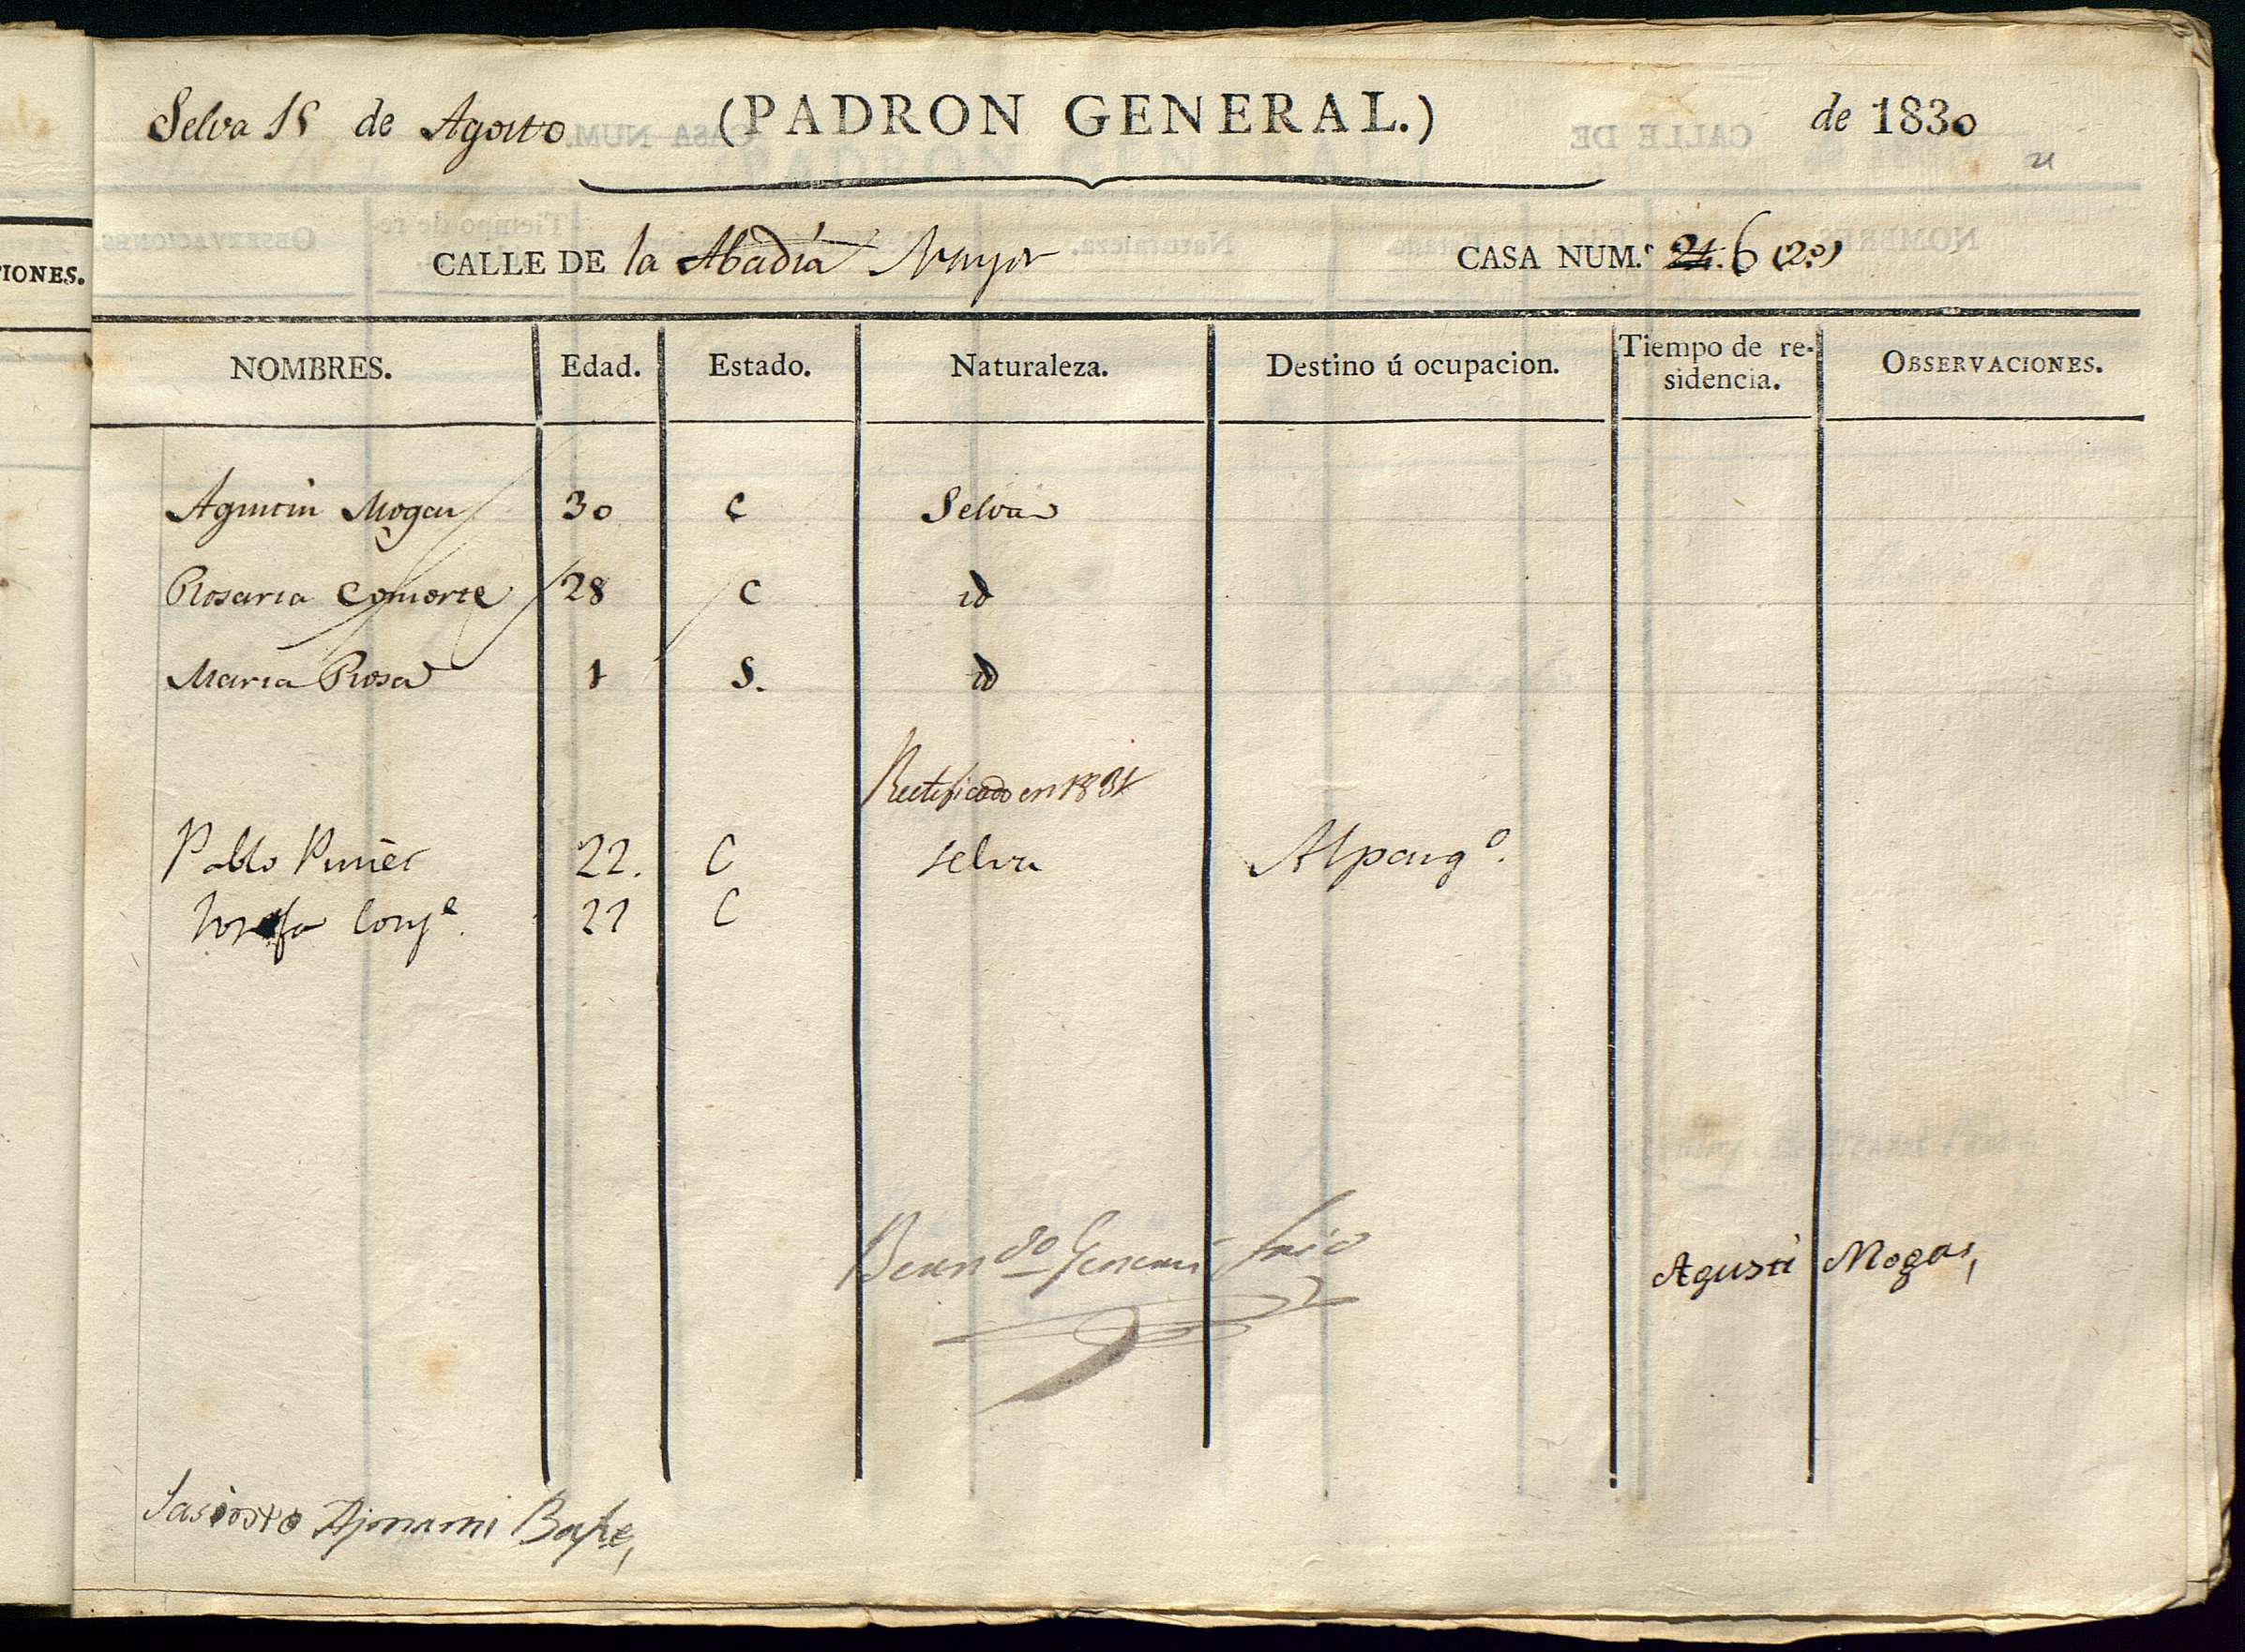 Selva 15 de Agosto (PADRON GENERAL.) de 1830
21
CALLE DE la Abadía Mayor CASA NUM.º 21. 6 (2.º)
NOMBRES. Edad. Estado. Naturaleza. Destino ú ocupacion. Tiempo de re-
sidencia. OBSERVACIONES.
IONES.
Agustin Mogas 30 C Selva
Rosaria Consorte 28 C id
Maria Rosa 1 S. id
Rectificado en 1831
Pablo Puñet 22. C selva Alparg.º
Josefa Conj.e 22 C
Agusti Mogas,
Bayle,